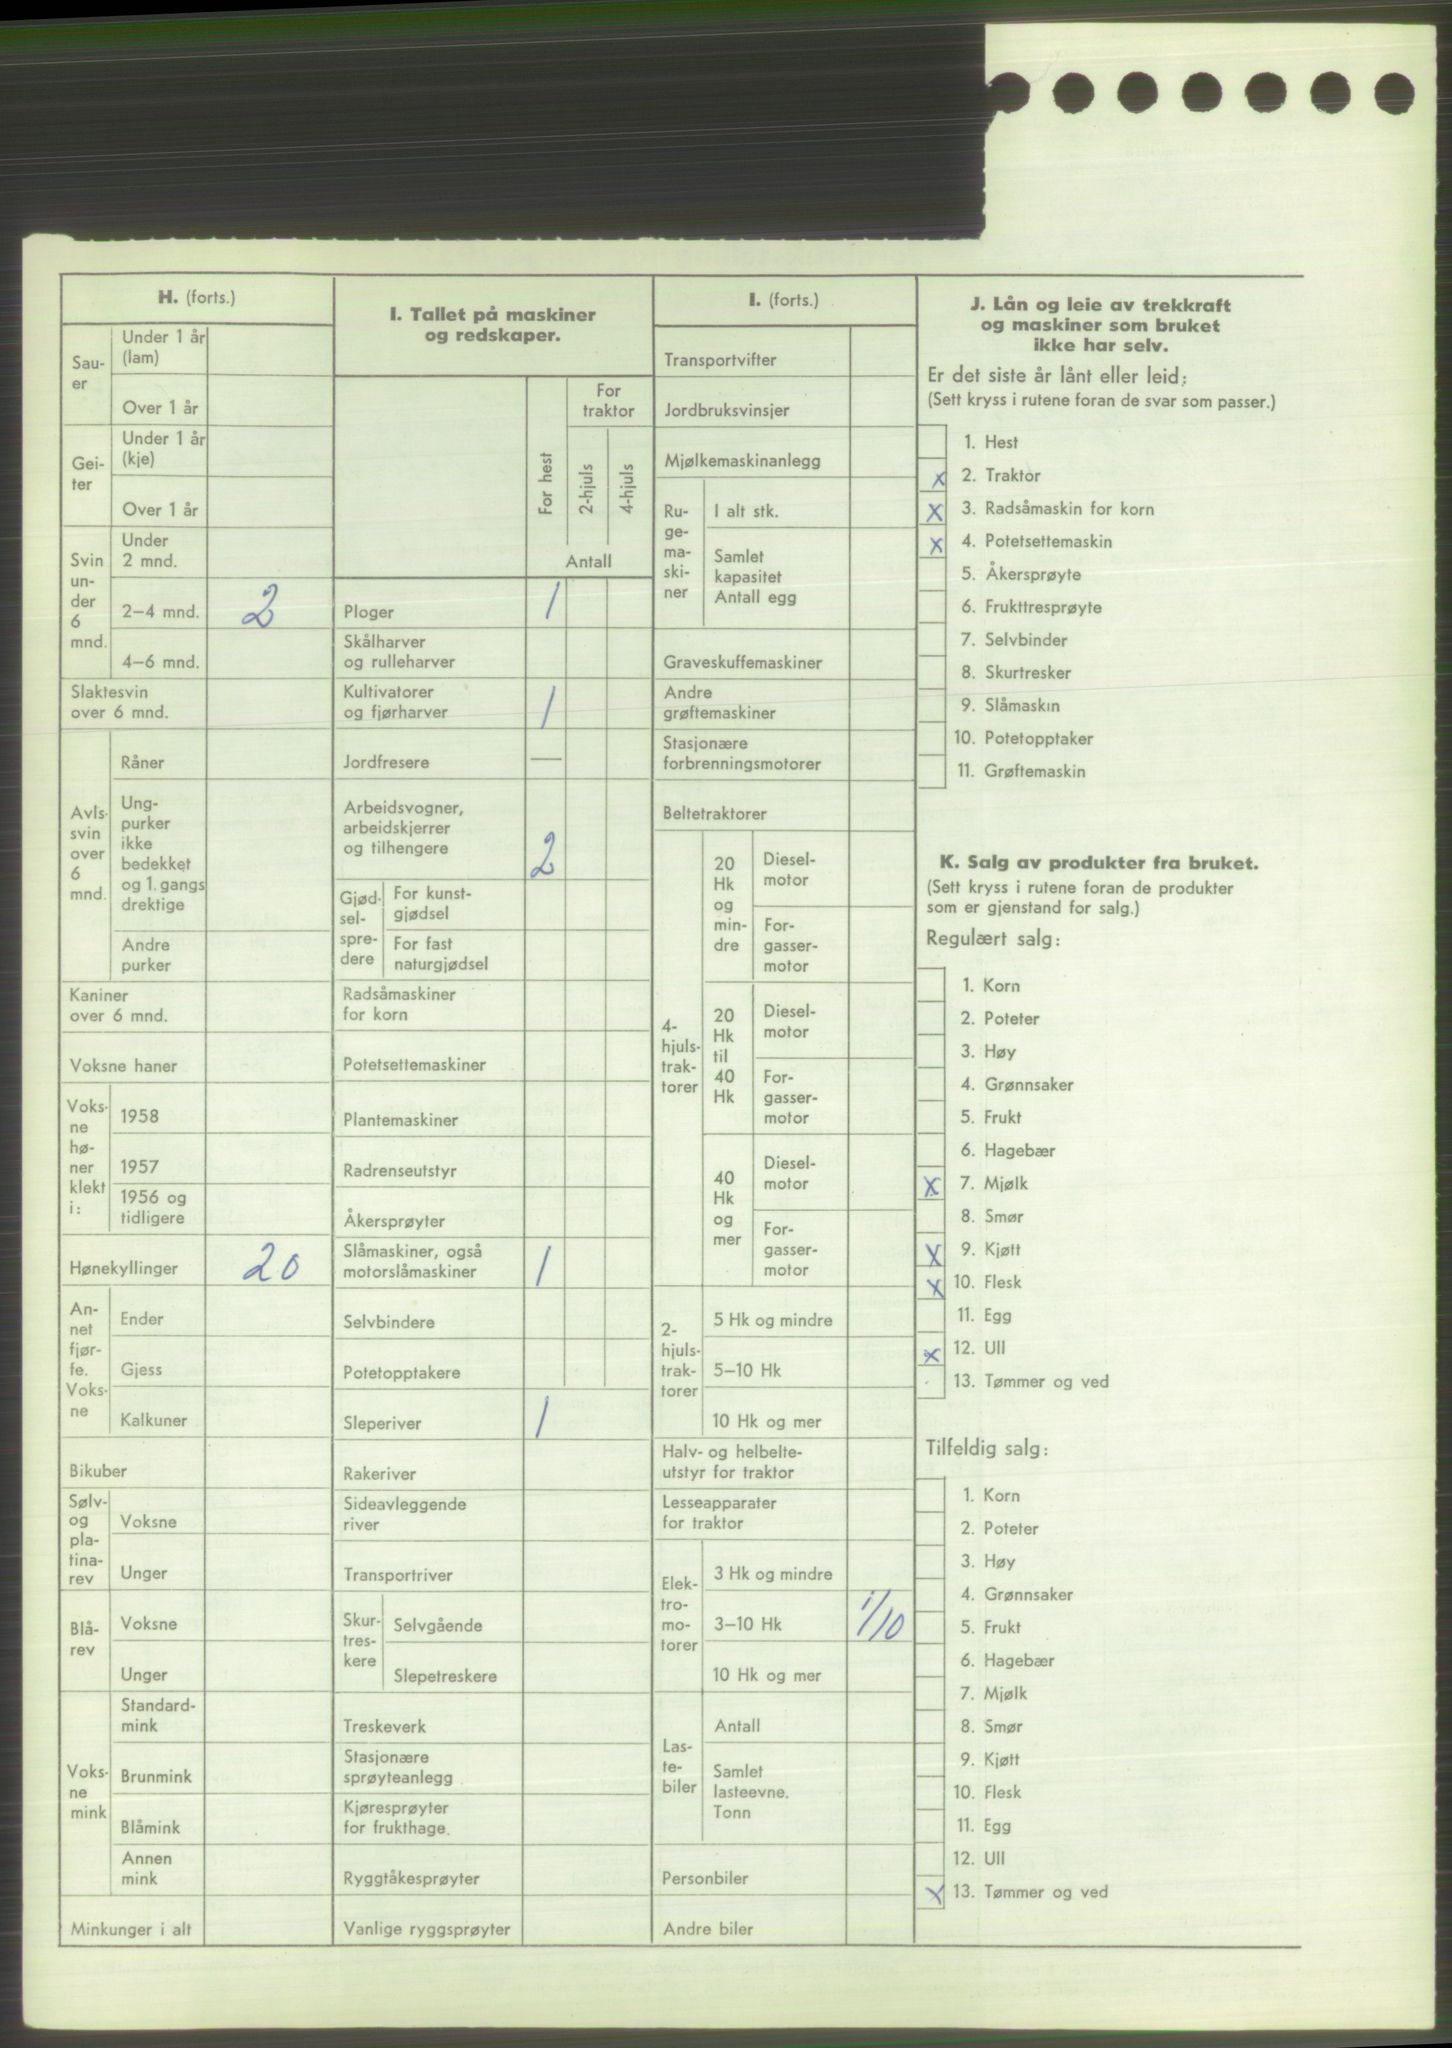 H. (forts.)
Sau-
er
Under 1 år
(lam)
Over 1 år
Gei-
ter
Under 1 år
(kje)
Over 1 år
Svin
un-
der
6
mnd.
Under
2 mnd.
2–4 mnd. 2
4–6 mnd.
Slaktesvin
over 6 mnd.
Avls-
svin
over
6
mnd.
Råner
Ung-
purker
ikke
bedekket
og 1. gangs
drektige
Andre
purker
Kaniner
over 6 mnd.
Voksne haner
Voks-
ne
hø-
ner
klekt
i:
1958
1957
1956 og
tidligere
Hønekyllinger 20
An-
net
fjør-
fe.
Voks-
ne
Ender
Gjess
Kalkuner
Bikuber
Sølv-
og
pla-
tina-
rev
Voksne
Unger
Blå-
rev
Voksne
Unger
Voks-
ne
mink
Standard-
mink
Brunmink
Blåmink
Annen
mink
Minkunger i alt
I. Tallet på maskiner
og redskaper.
For hest
For
traktor
2-hjuls
4-hjuls
Antall
Ploger 1
Skålharver
og rulleharver
Kultivatorer
og fjørharver 1
Jordfresere —
Arbeidsvogner,
arbeidskjerrer
og tilhengere 2
Gjød-
sel-
spre-
dere
For kunst-
gjødsel
For fast
naturgjødsel
Radsåmaskiner
for korn
Potetsettemaskiner
Plantemaskiner
Radrenseutstyr
Åkersprøyter
Slåmaskiner, også
motorslåmaskiner 1
Selvbindere
Potetopptakere
Sleperiver 1
Rakeriver
Sideavleggende
river
Transportriver
Skur-
tres-
kere
Selvgående
Slepetreskere
Treskeverk
Stasjonære
sprøyteanlegg
Kjøresprøyter
for frukthage.
Ryggtåkesprøyter
Vanlige ryggsprøyter
I. (forts.)
Transportvifter
Jordbruksvinsjer
Mjølkemaskinanlegg
Ru-
ge-
ma-
ski-
ner
I alt stk.
Samlet
kapasitet
Antall egg
Graveskuffemaskiner
Andre
grøftemaskiner
Stasjonære
forbrenningsmotorer
Beltetraktorer
4-
hjuls-
trak-
torer
20
Hk
og
min-
dre
Diesel-
motor
For-
gasser-
motor
20
Hk
til
40
Hk
Diesel-
motor
For-
gasser-
motor
40
Hk
og
mer
Diesel-
motor
For-
gasser-
motor
2-
hjuls-
trak-
torer
5 Hk og mindre
5–10 Hk
10 Hk og mer
Halv- og helbelte-
utstyr for traktor
Lesseapparater
for traktor
Elek-
tro-
mo-
torer
3 Hk og mindre
3–10 Hk 1/10
10 Hk og mer
Las-
te-
biler
Antall
Samlet
lasteevne.
Tonn
Personbiler
Andre biler
J. Lån og leie av trekkraft
og maskiner som bruket
ikke har selv.
Er det siste år lånt eller leid:
(Sett kryss i rutene foran de svar som passer.)
1. Hest
x 2. Traktor
x 3. Radsåmaskin for korn
x 4. Potetsettemaskin
5. Åkersprøyte
6. Frukttresprøyte
7. Selvbinder
8. Skurtresker
9. Slåmaskin
10. Potetopptaker
11. Grøftemaskin
K. Salg av produkter fra bruket.
(Sett kryss i rutene foran de produkter
som er gjenstand for salg.)
Regulært salg:
1. Korn
2. Poteter
3. Høy
4. Grønnsaker
5. Frukt
6. Hagebær
x 7. Mjølk
8. Smør
x 9. Kjøtt
x 10. Flesk
11. Egg
x 12. Ull
13. Tømmer og ved
Tilfeldig salg:
1. Korn
2. Poteter
3. Høy
4. Grønnsaker
5. Frukt
6. Hagebær
7. Mjølk
8. Smør
9. Kjøtt
10. Flesk
11. Egg
12. Ull
x 13. Tømmer og ved